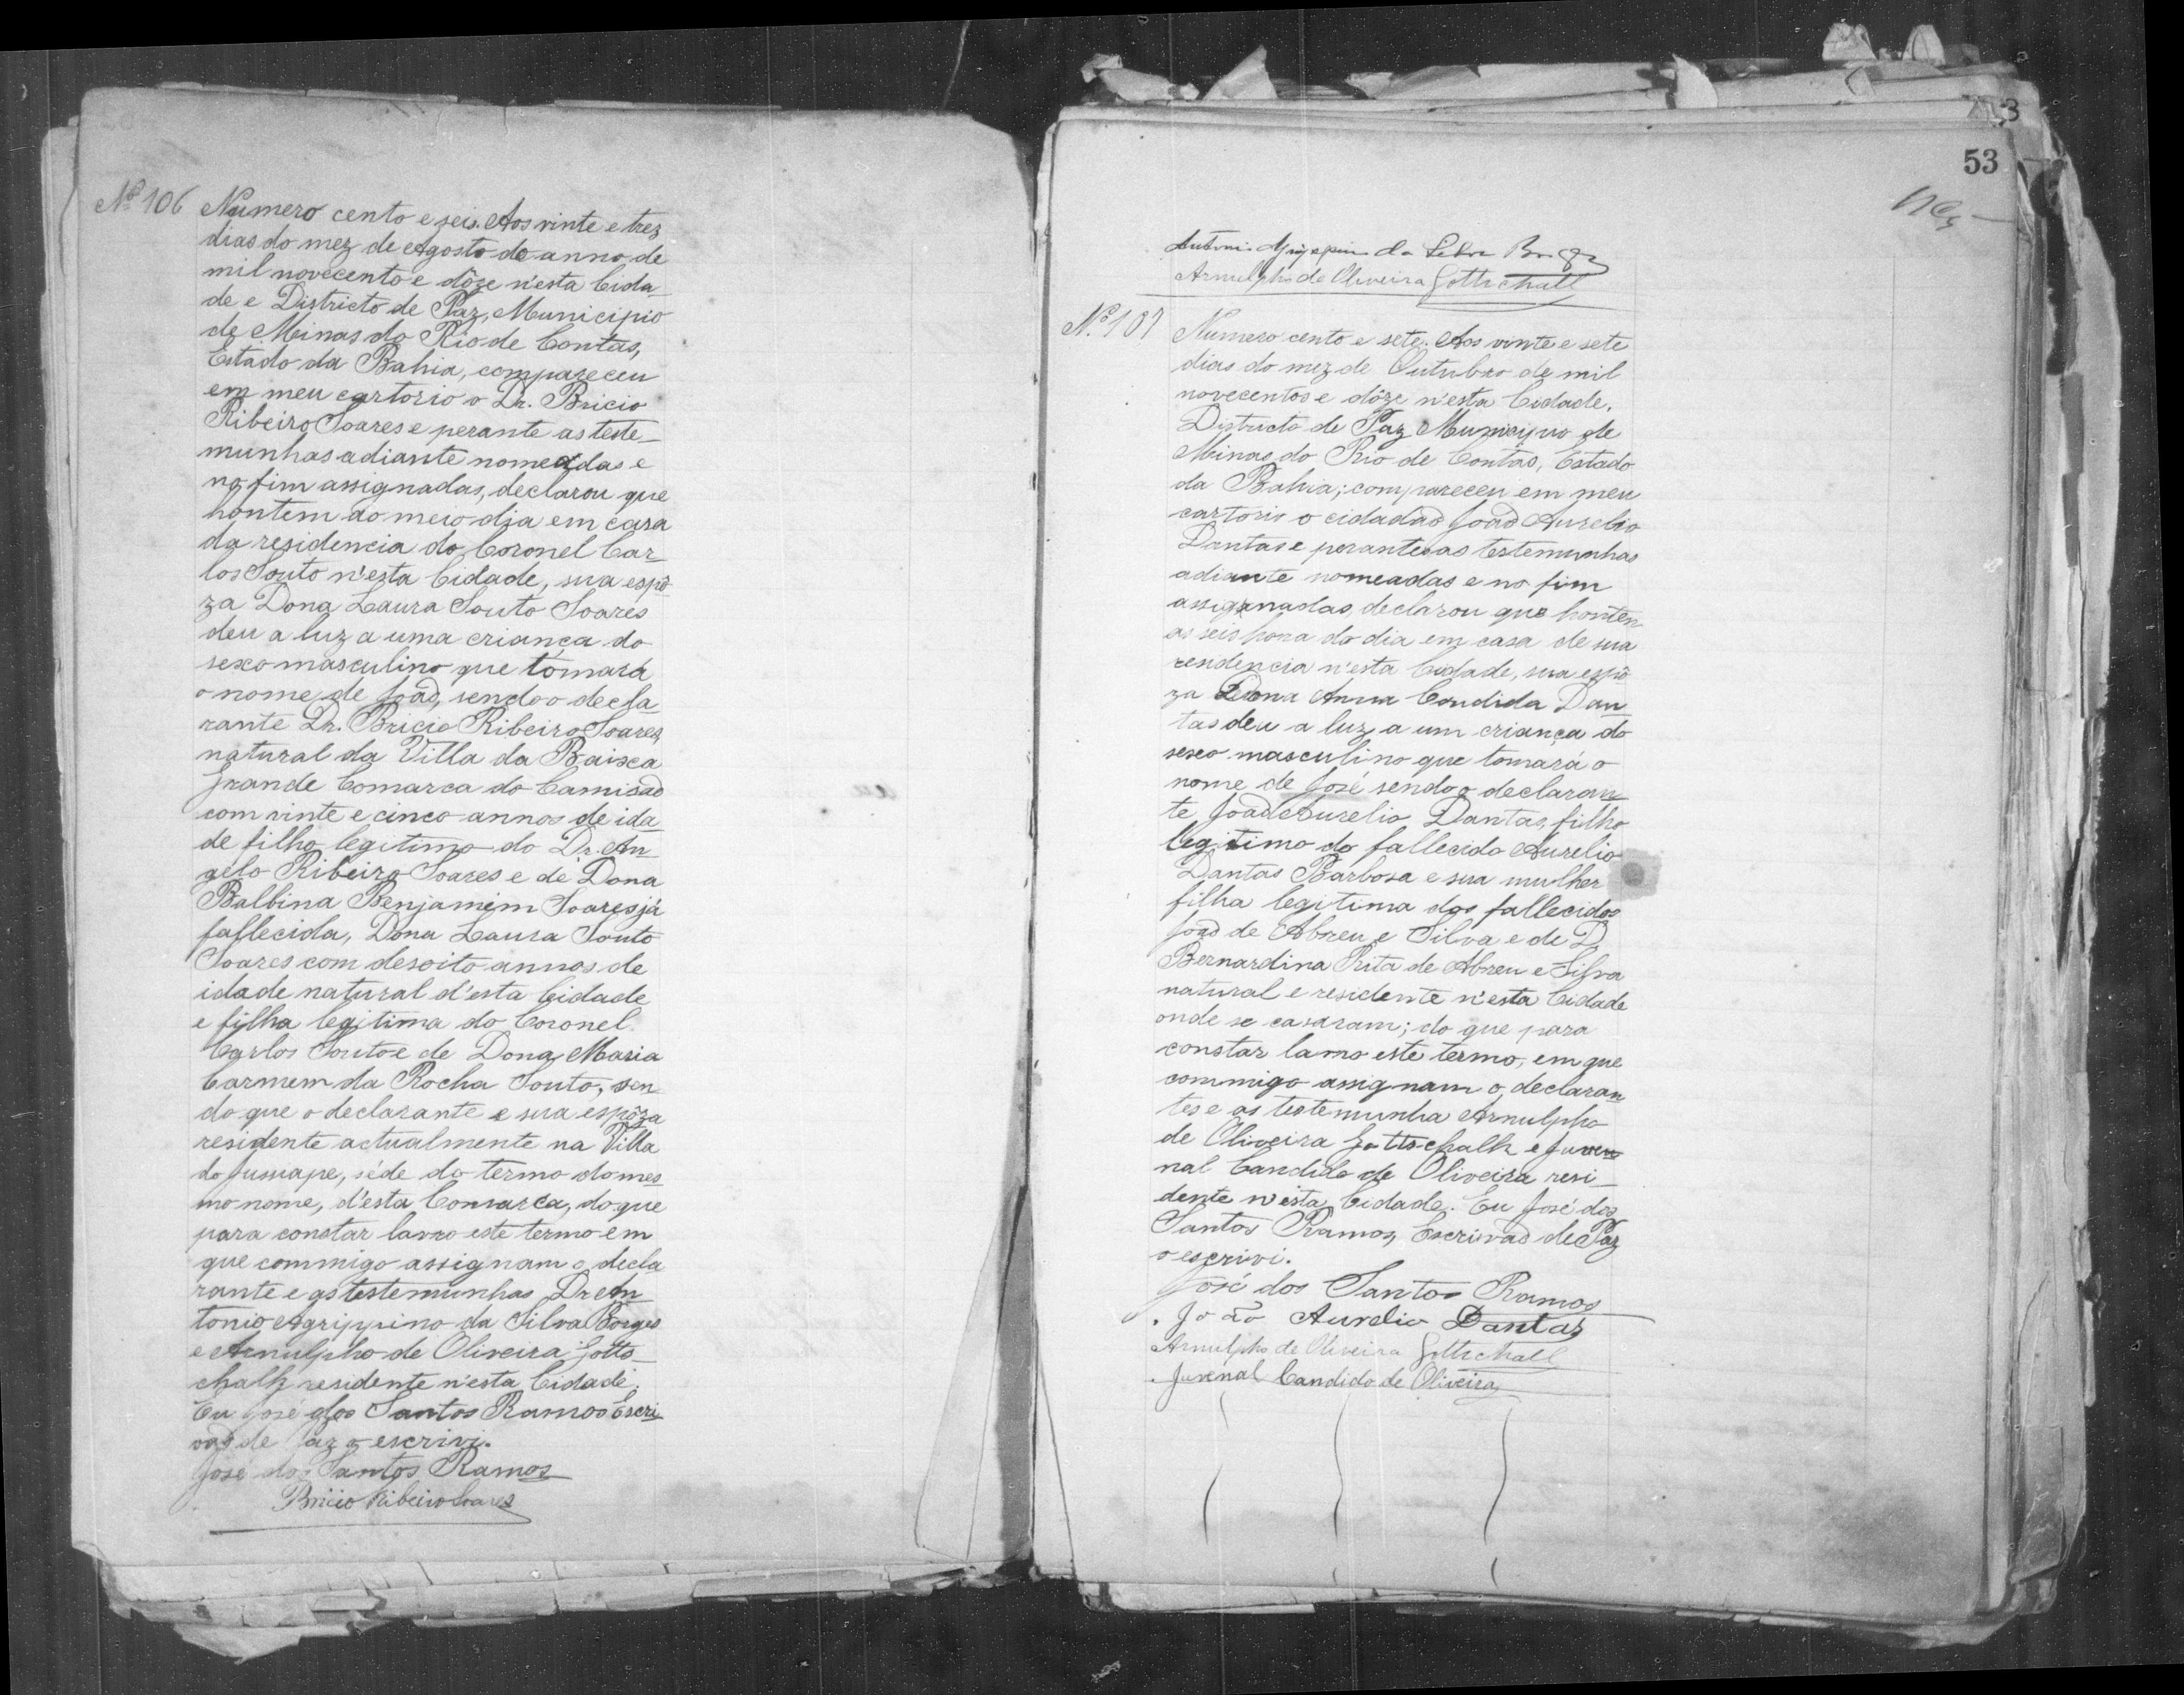 Nº 106
Numero cento e seis. Aos vinte e trez
dias do mez de Agosto do anno de
mil novecento e dôze n'esta Cida-
de e Districto de Paz, Municipio
de Minas do Rio de Contas,
Estado da Bahia, compareceu
em meu cartorio o Dr. Bricio
Ribeiro Soares e perante as teste-
munhas adiante nomeadas e
no fim assignadas, declarou que
hontem ao meio dia em casa
da residencia do Coronel Car-
los Souto n'esta Cidade, sua espô-
za Dona Laura Souto Soares
deu a luz a uma criança do
sexo masculino que tomará
o nome de João, sendo o decla-
rante Dr. Bricio Ribeiro Soares,
natural da Villa da Baixa
Grande Comarca do Camisão
com vinte e cinco annos de ida-
de filho legitimo do Dr. An-
gelo Ribeiro Soares e de Dona
Balbina Benjamim Soares já
fallecida, Dona Laura Souto
Soares com desoito annos de
idade natural d'esta Cidade
e filha legitima do Coronel
Carlos Souto e de Dona Maria
Carmem da Rocha Souto, sen-
do que o declarante e sua espôza
residente actualmente na Villa
do Jussiape, séde do termo do mes-
mo nome, d'esta Comarca, do que
para constar lavro este termo em
que commigo assignam o decla-
rante e as testemunhas Dr. An-
tonio Agrippino da Silva Borges
e Arnulpho de Oliveira Gotts-
chalk residente n'esta Cidade.
Eu José dos Santos Ramos Escri-
vão de Paz o escrivi.
José dos Santos Ramos
Bricio Ribeiro Soares
53
Antonio Agrippino da Silva Borges
Arnulpho de Oliveira Gottschall
Nº 107
Numero cento e sete. Aos vinte e sete
dias do mez de Outubro de mil
novecentos e dôze n'esta Cidade.
Districto de Paz Municipio de
Minas do Rio de Contas, Estado
da Bahia; compareceu em meu
cartorio o cidadão João Aurelio
Dantas e perante as testemunhas
adiante nomeadas e no fim
assignadas, declarou que hontem
as seis hora do dia em casa de sua
residencia n'esta Cidade, sua espô-
za Dona Anna Candida Dan-
tas deu a luz a um criança do
sexo masculino que tomará o
nome de José sendo o declaran-
te João Aurelio Dantas, filho
legitimo do fallecido Aurelio
Dantas Barbosa e sua mulher
filha legitima dos fallecidos
João de Abreu e Silva e de D.
Bernardina Rita de Abreu e Silva
natural e residente n'esta Cidade
onde se casaram; do que para
constar lamo este termo, em que
commigo assignam o declaran-
tes e as testemunha Arnulpho
de Oliveira Gottschalk e Juve-
nal Candido de Oliveira resi-
dente n'esta Cidade. Eu José dos
Santos Ramos, Escrivão de Paz
o escrivi.
José dos Santos Ramos
João Aurelio Dantas
Arnulpho de Oliveira Gottschall
Juvenal Candido de Oliveira